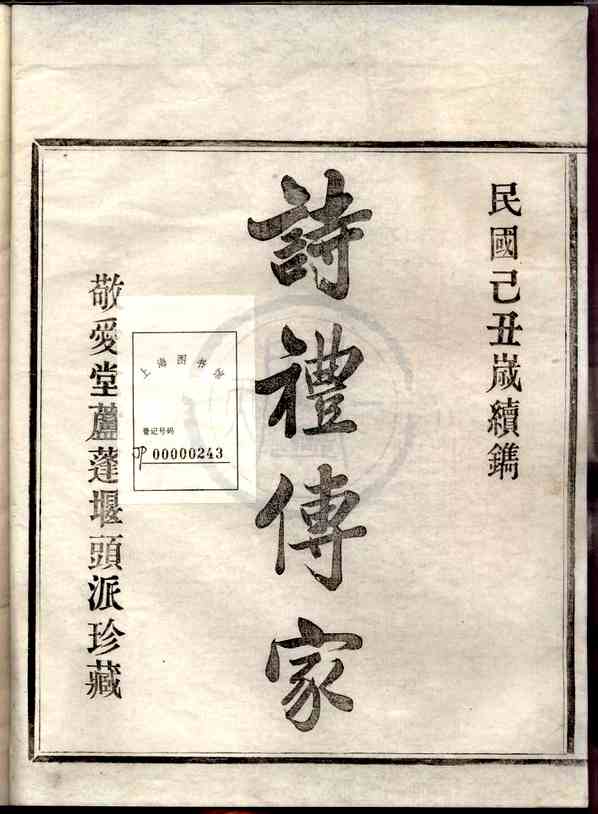 民國己丑歲續鐫
詩禮傳家
敬愛堂蘆蓬堰頭派珍藏
上海图书馆
登记号码
JP 00000243